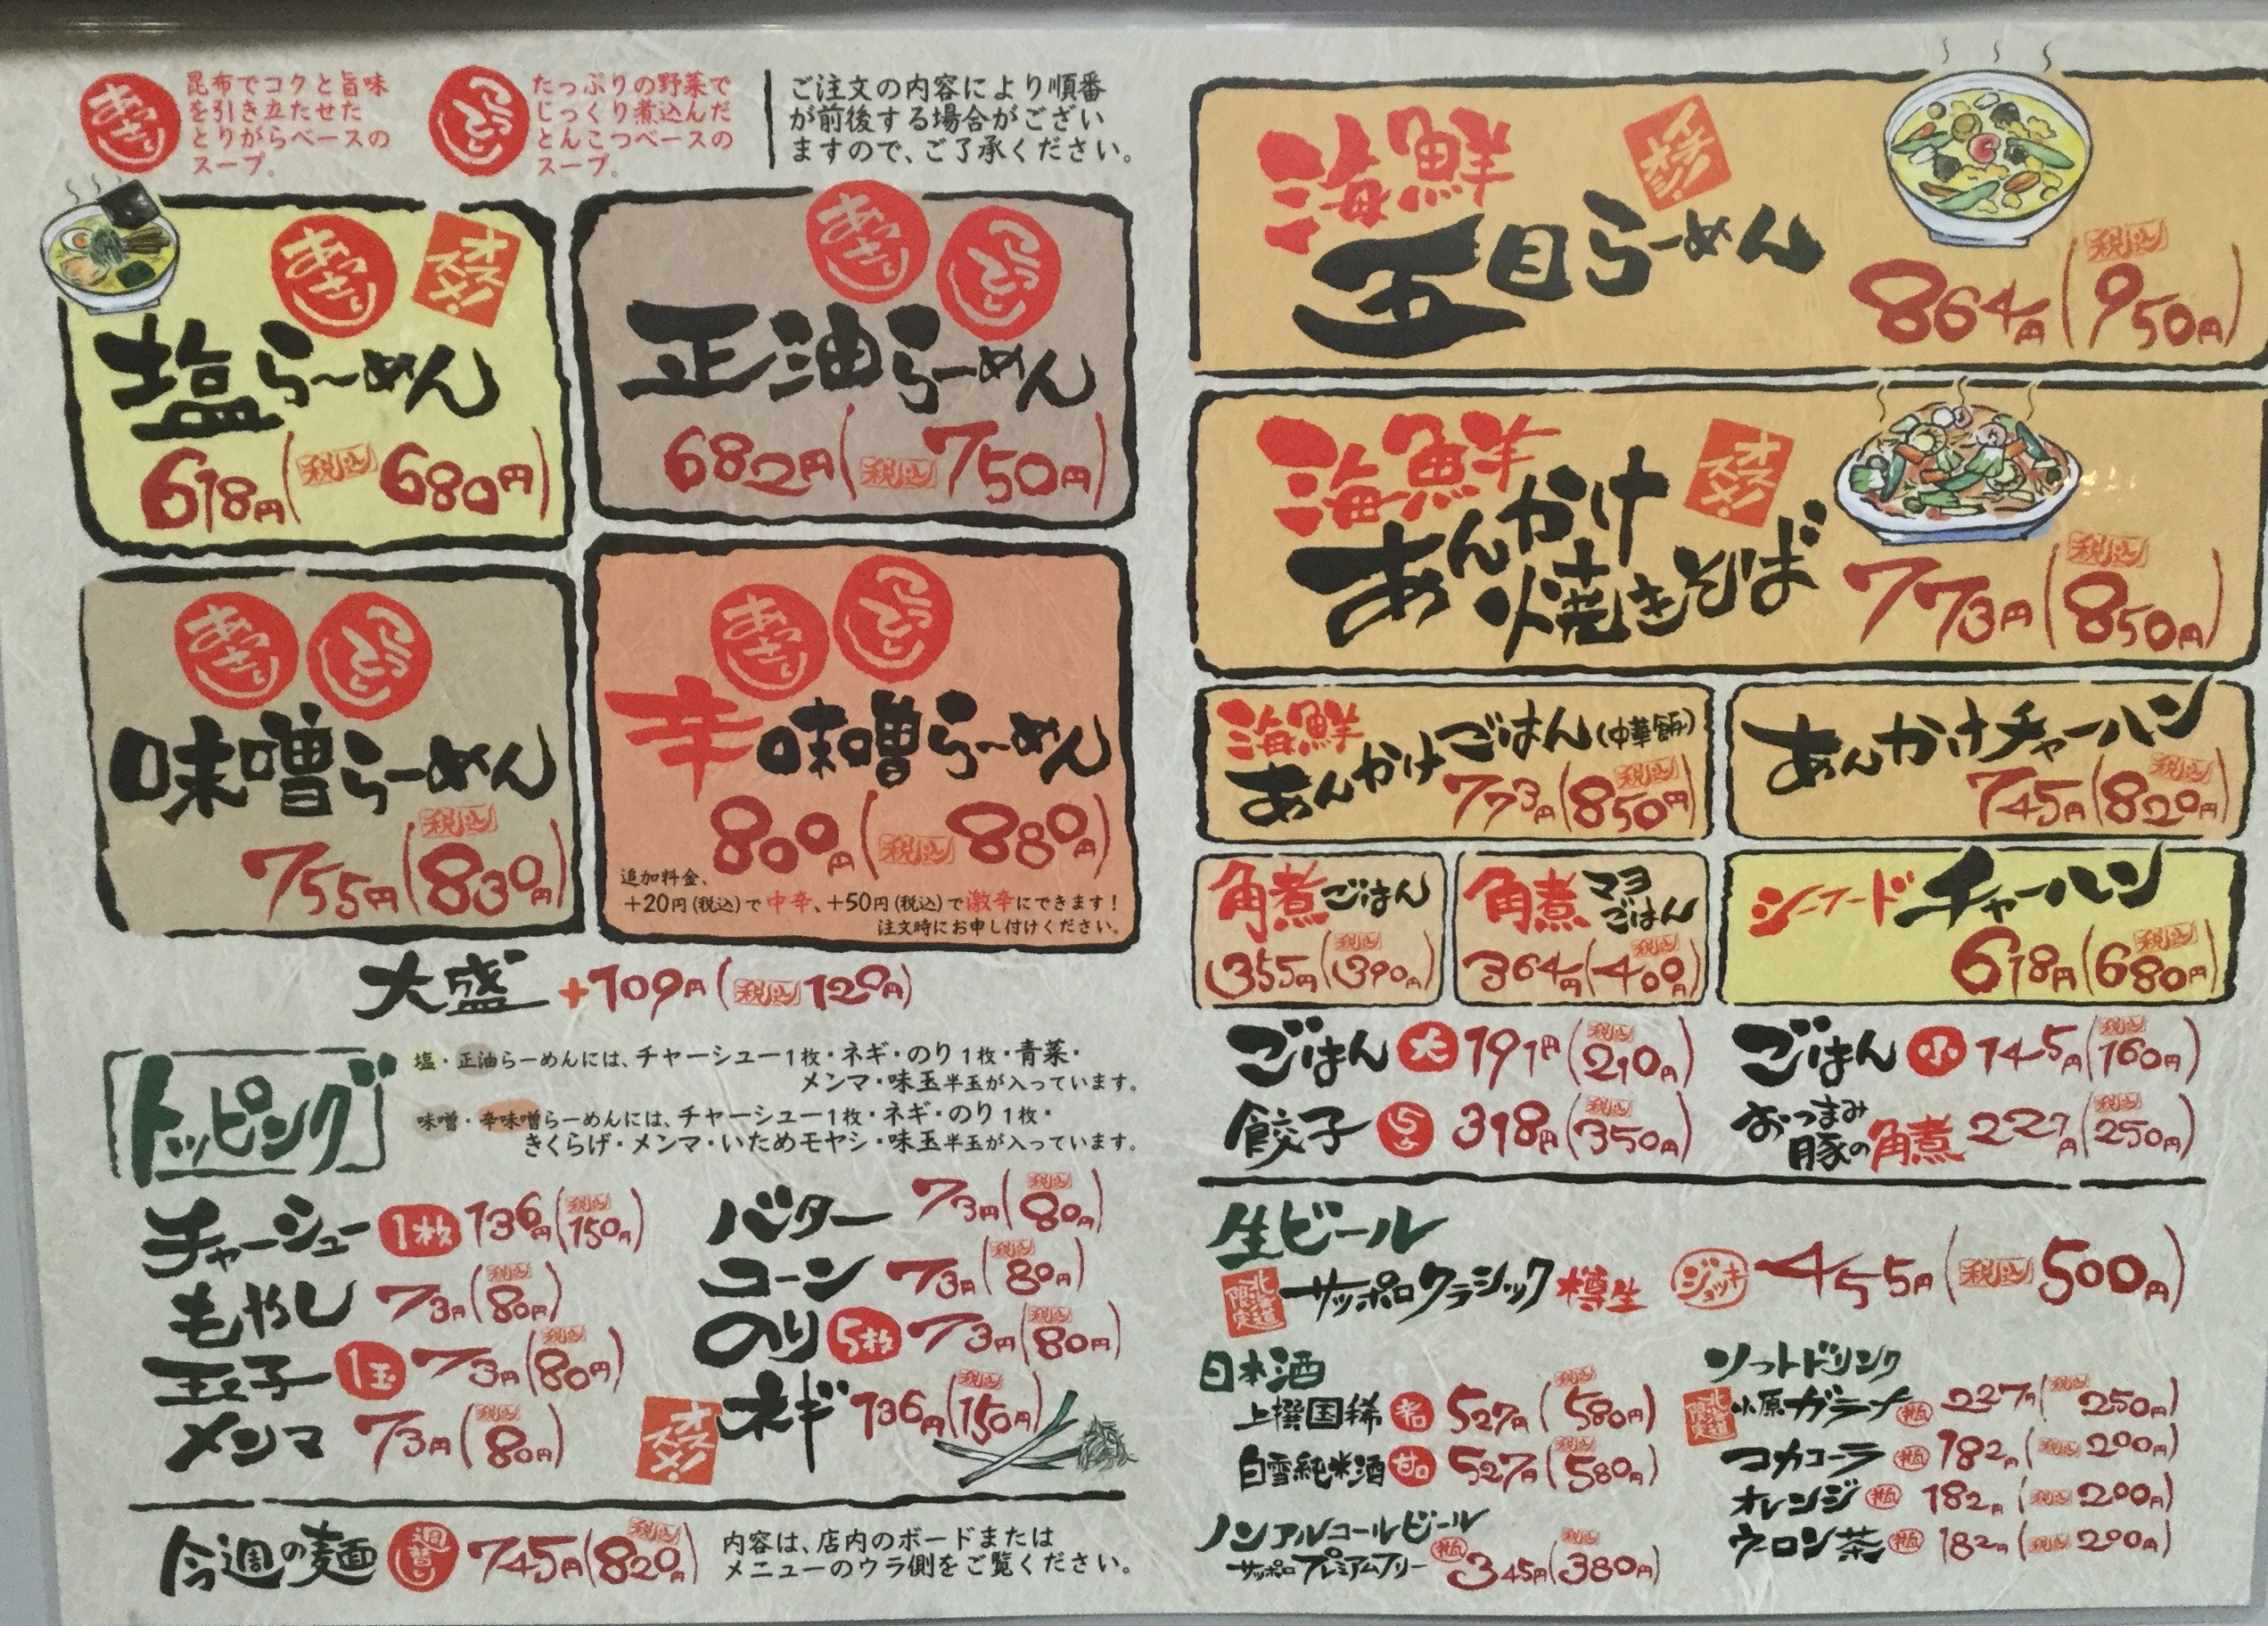 あっさり
昆布でコクと旨味
を引き立たせた
とりがらベースの
スープ。
こってり
たっぷりの野菜で
じっくり煮込んだ
とんこつベースの
スープ。
ご注文の内容により順番
が前後する場合がござい
ますので、ご了承ください。
あっさり オススメ!
塩らーめん
618円(税込680円)
あっさり こってり
正油らーめん
682円(税込750円)
あっさり こってり
味噌らーめん
755円(税込830円)
あっさり こってり
辛味噌らーめん
800円(税込880円)
追加料金、
+20円(税込)で中辛、+50円(税込)で激辛にできます!
注文時にお申し付けください。
大盛 +109円(税込120円)
トッピング
塩・正油らーめんには、チャーシュー1枚・ネギ・のり1枚・青菜・
メンマ・味玉半玉が入っています。
味噌・辛味噌らーめんには、チャーシュー1枚・ネギ・のり1枚・
きくらげ・メンマ・いためモヤシ・味玉半玉が入っています。
チャーシュー 1枚 136円(税込150円)
もやし 73円(税込80円)
玉子 1玉 73円(税込80円)
メンマ 73円(税込80円)
バター 73円(税込80円)
コーン 73円(税込80円)
のり 5枚 73円(税込80円)
オススメ! ネギ 136円(税込150円)
今週の麺 週替り 745円(税込820円)
内容は、店内のボードまたは
メニューのウラ側をご覧ください。
海鮮
五目らーめん
864円(税込950円)
海鮮 オススメ!
あんかけ
焼きそば
773円(税込850円)
海鮮
あんかけごはん(中華飯)
773円(税込850円)
あんかけチャーハン
745円(税込820円)
角煮ごはん
355円(税込390円)
角煮マヨごはん
364円(税込400円)
シーフードチャーハン
618円(税込680円)
ごはん 大 191円(税込210円)
ごはん 小 145円(税込160円)
餃子 5コ 318円(税込350円)
おつまみ
豚の角煮 227円(税込250円)
生ビール
北海道限定 サッポロクラシック 樽生 ジョッキ 455円(税込500円)
日本酒
上撰国稀 名 527円(税込580円)
白雪純米酒 甘口 527円(税込580円)
ノンアルコールビール
サッポロプレミアムフリー 瓶 345円(税込380円)
ソフトドリンク
北海道限定 小原ガラナ 瓶 227円(税込250円)
コカコーラ 瓶 182円(税込200円)
オレンジ 瓶 182円(税込200円)
ウーロン茶 瓶 182円(税込200円)